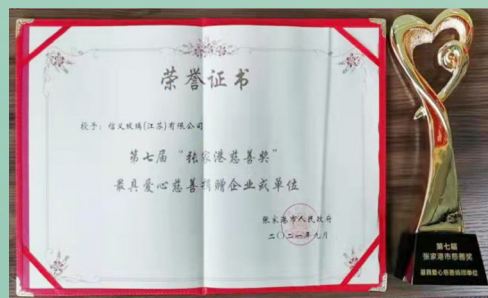 荣誉证书
授予：信义玻璃(江苏)有限公司
第七届“张家港慈善奖”
最具爱心慈善捐赠企业或单位
张家港市人民政府
二〇二一年九月
第七届
张家港市慈善奖